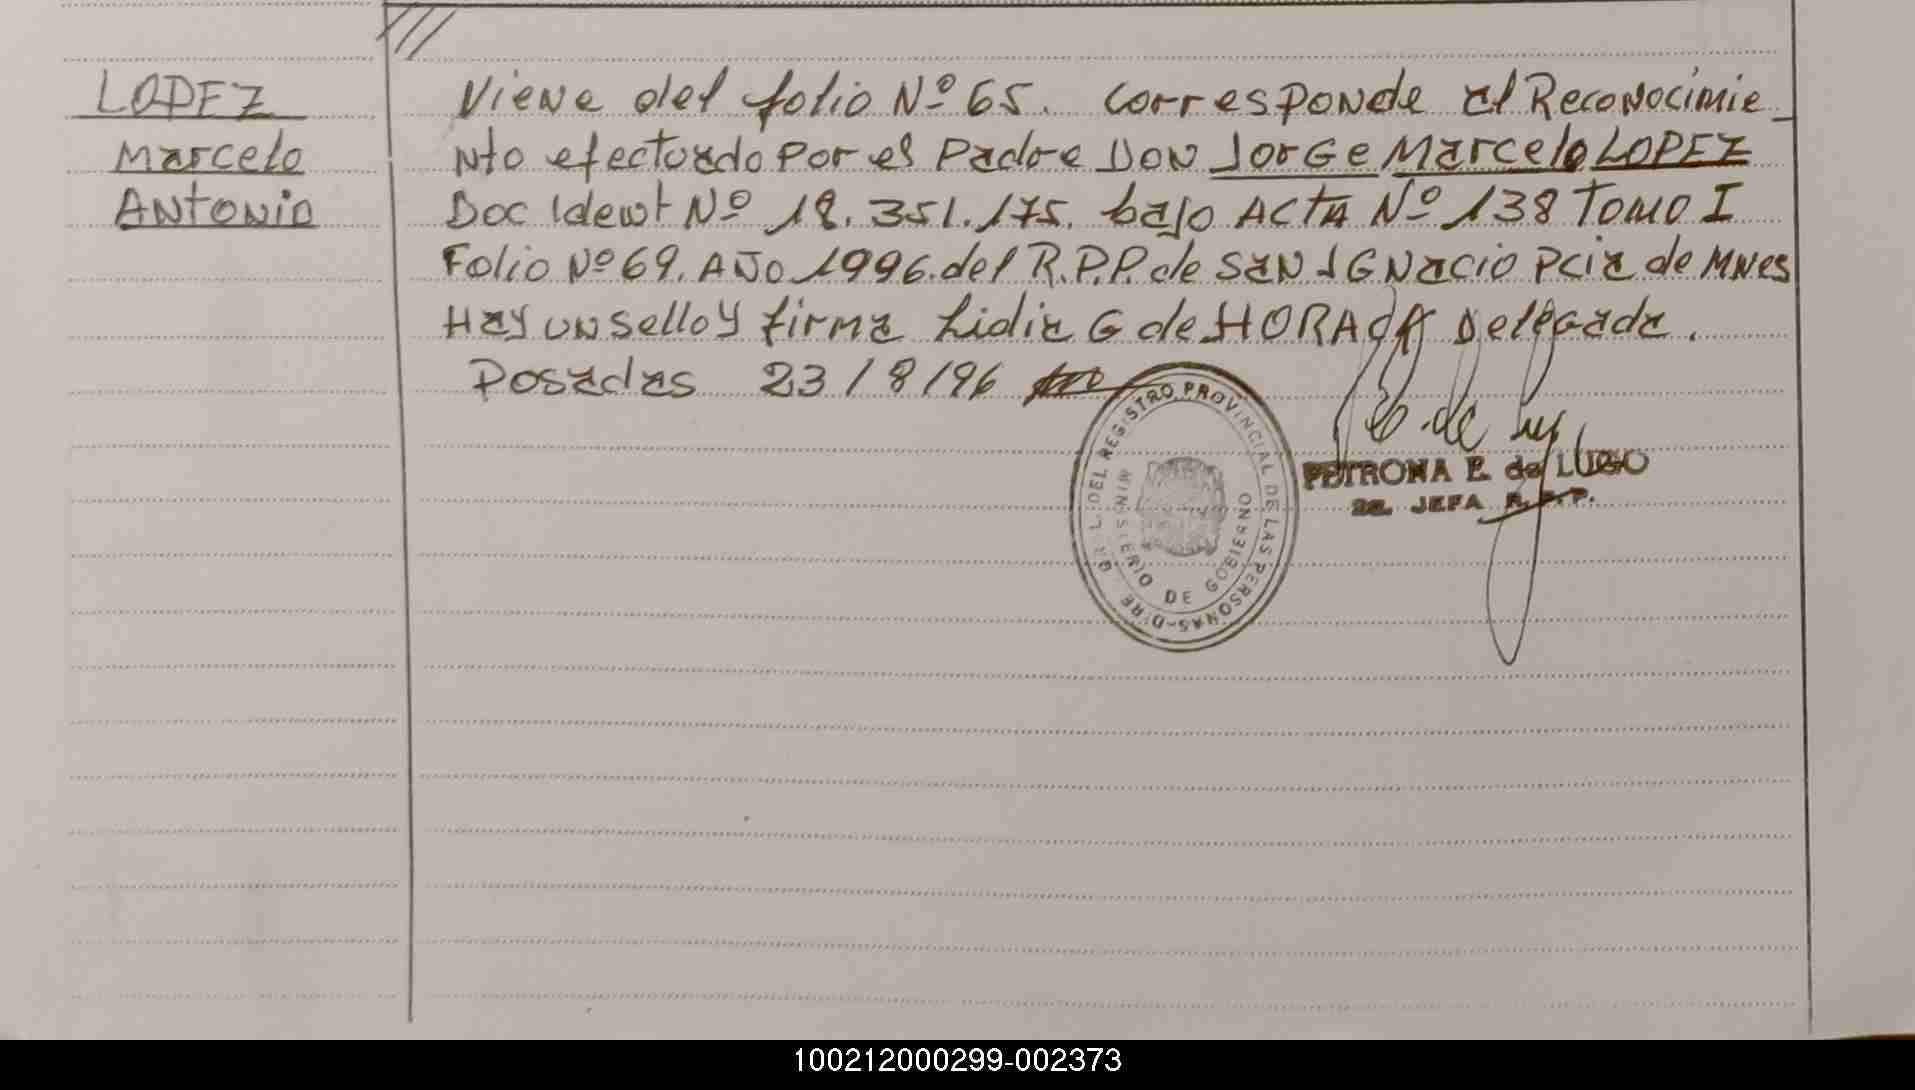 LOPEZ
Marcelo
Antonio
///
Viene del folio Nº 65. Corresponde al Reconocimie_
nto efectuado por el Padre Don Jorge Marcelo LOPEZ
Doc Ident Nº 18.351.175. bajo Acta Nº 138 Tomo I
Folio Nº 69. Año 1996. del R.P.P. de San Ignacio Pcia de Mnes
Hay un sello y firma Lidia G de HORACA Delegada.
Posadas 23/8/96
DEL REGISTRO PROVINCIAL DE LAS PERSONAS-DIRE
MINISTERIO DE GOBIERNO
PETRONA E. de LUGO
JEFA R.P.P.
100212000299-002373